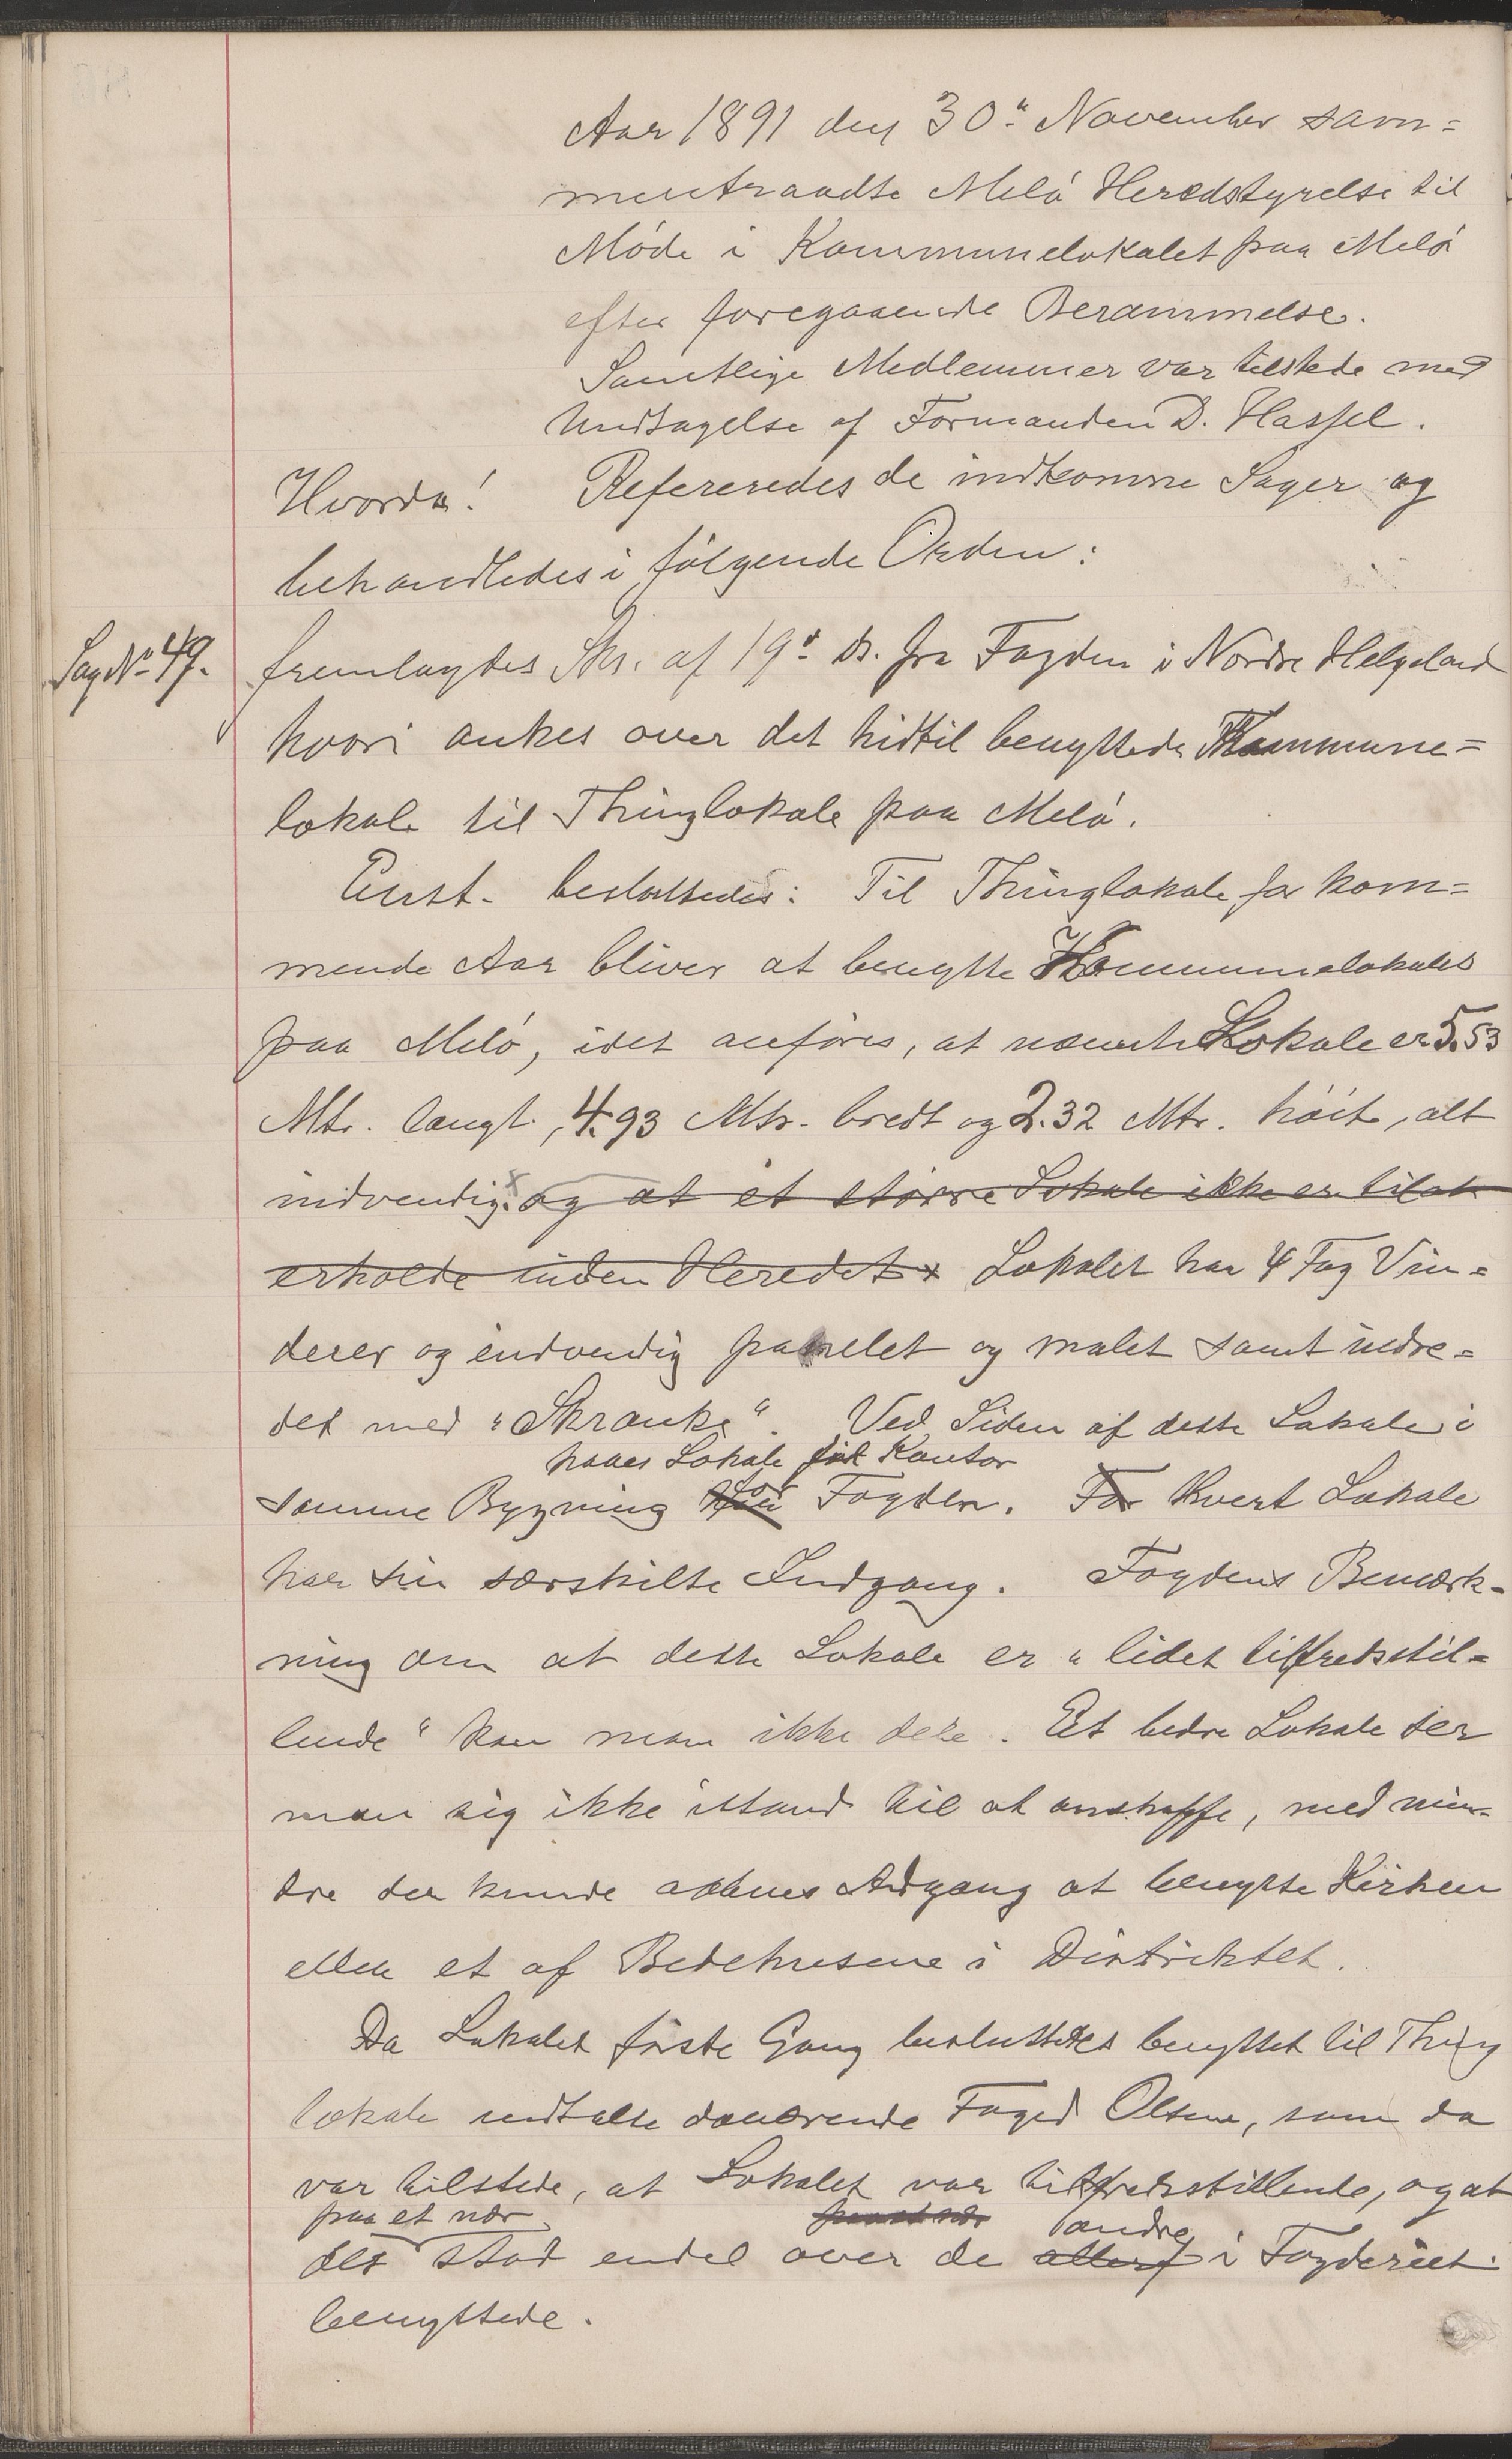 Aar 1891 den 30" November sam=
mentraadte Melø Heredstyrelse til
Møde i Kommunelokalet paa Melø
efter foregaaende Berammelse.
Samtlige Medlemmer var tilstede med
Undtagelse af Formanden D. Hassel.
Hvorda! Refereredes de indkomne Sager og
behandledes i følgende Orden:
Sag No 49.
fremlagdes Skr. af 19d ds. fra Fogden i Nordre Helgeland
hvori ankes over det hidtil benyttede Kommune=
lokale til Thinglokale paa Melø.
Enst. besluttedes: Til Thinglokale for kom=
mende Aar bliver at benytte Kommunelokalet
paa Melø, idet anføres, at nævnte Lokale er 5.53
Mtr. langt, 4.93 Mtr. bredt og 2.32 Mtr. høit, alt
indvendig. og at et større Lokale ikke er tilat
erholde inden Heredet x Lokalet har 4 Fag Vin=
duer og indvendig panelet og malet samt indre=
det med "Skranke". Ved Siden af dette Lokale i
haves Lokale til Kontor
samme Bygning for Fogden. For Hvert Lokale
har sin særskilte Indgang. Fogdens Bemærk-
ning om at dette Lokale er "lidet tilfredsstil=
lende" kan man ikke dele. Et bedre Lokale ser
man sig ikke istand til at anskaffe, med min-
dre der kunde aabnes Adgang at benytte Kirken
eller et af Bedehusene i Distriktet.
Da Lokalet første Gang besluttedes benyttet til Thing
lokale udtalte daværende Foged Olsen, som da
var tilstede, at Lokalet var tilfredsstillende, og at
paa et nær paa et nær andre
det stod endel over de allerf i Fogderiet
benyttede.